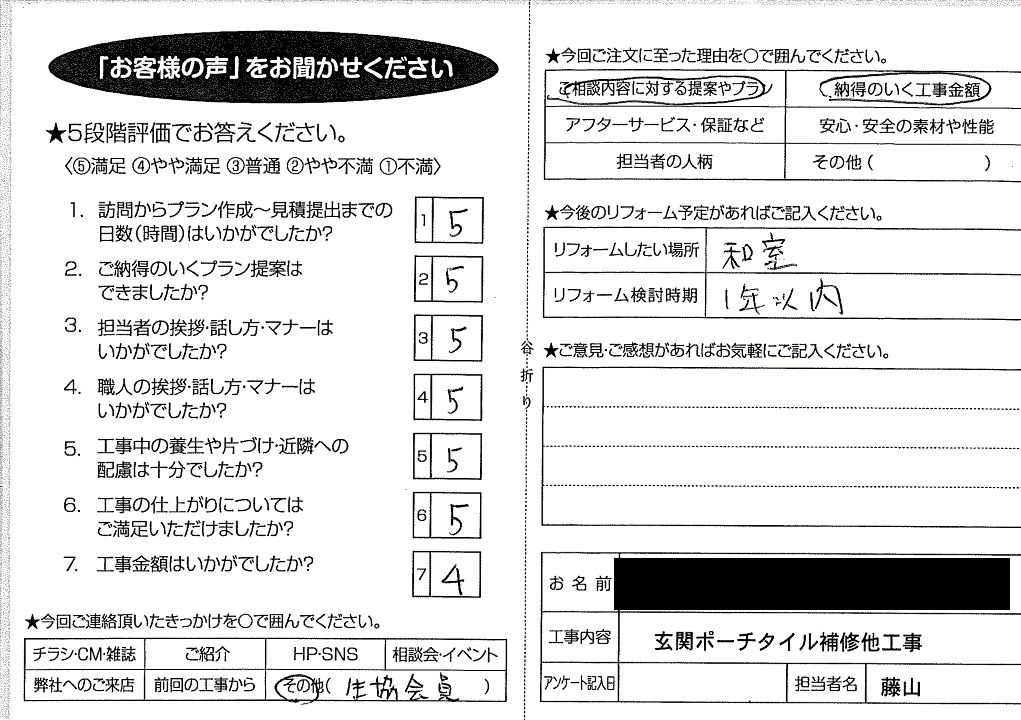 「お客様の声」をお聞かせください
★5段階評価でお答えください。
〈⑤満足 ④やや満足 ③普通 ②やや不満 ①不満〉
1. 訪問からプラン作成～見積提出までの
日数(時間)はいかがでしたか?
1 5
2. ご納得のいくプラン提案は
できましたか?
2 5
3. 担当者の挨拶・話し方・マナーは
いかがでしたか?
3 5
4. 職人の挨拶・話し方・マナーは
いかがでしたか?
4 5
5. 工事中の養生や片づけ・近隣への
配慮は十分でしたか?
5 5
6. 工事の仕上がりについては
ご満足いただけましたか?
6 5
7. 工事金額はいかがでしたか?
7 4
★今回ご連絡頂いたきっかけを○で囲んでください。
チラシ・CM・雑誌 ご紹介 HP・SNS 相談会・イベント
弊社へのご来店 前回の工事から その他( 生協会員 )
谷折り
★今回ご注文に至った理由を○で囲んでください。
ご相談内容に対する提案やプラン 納得のいく工事金額
アフターサービス・保証など 安心・安全の素材や性能
担当者の人柄 その他( )
★今後のリフォーム予定があればご記入ください。
リフォームしたい場所 和室
リフォーム検討時期 1年以内
★ご意見・ご感想があればお気軽にご記入ください。
お名前
工事内容 玄関ポーチタイル補修他工事
アンケート記入日 担当者名 藤山